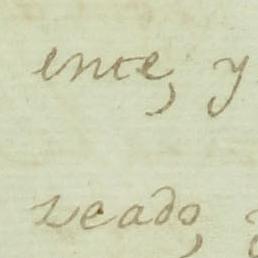 ente, y
reado,